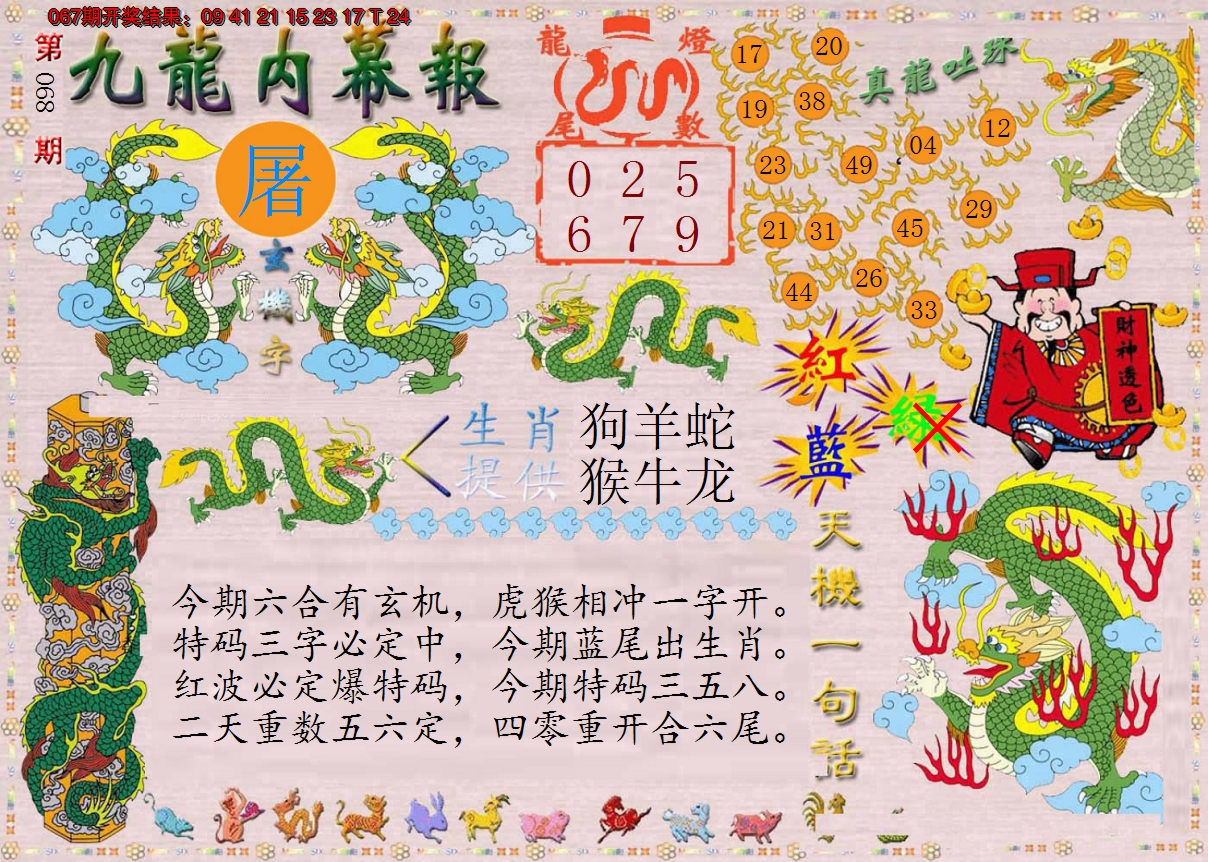 067期开奖结果：09 41 21 15 23 17 T 24
第068期
九龍内幕報
屠
玄機字
龍燈
尾數
0 2 5
6 7 9
真龍吐珠
17 20
19 38
12
04
23 49
29
21 31 45
26
44
33
財神透色
紅
綠
藍
生肖
提供
狗羊蛇
猴牛龙
天機一句话
今期六合有玄机，虎猴相冲一字开。
特码三字必定中，今期蓝尾出生肖。
红波必定爆特码，今期特码三五八。
二天重数五六定，四零重开合六尾。